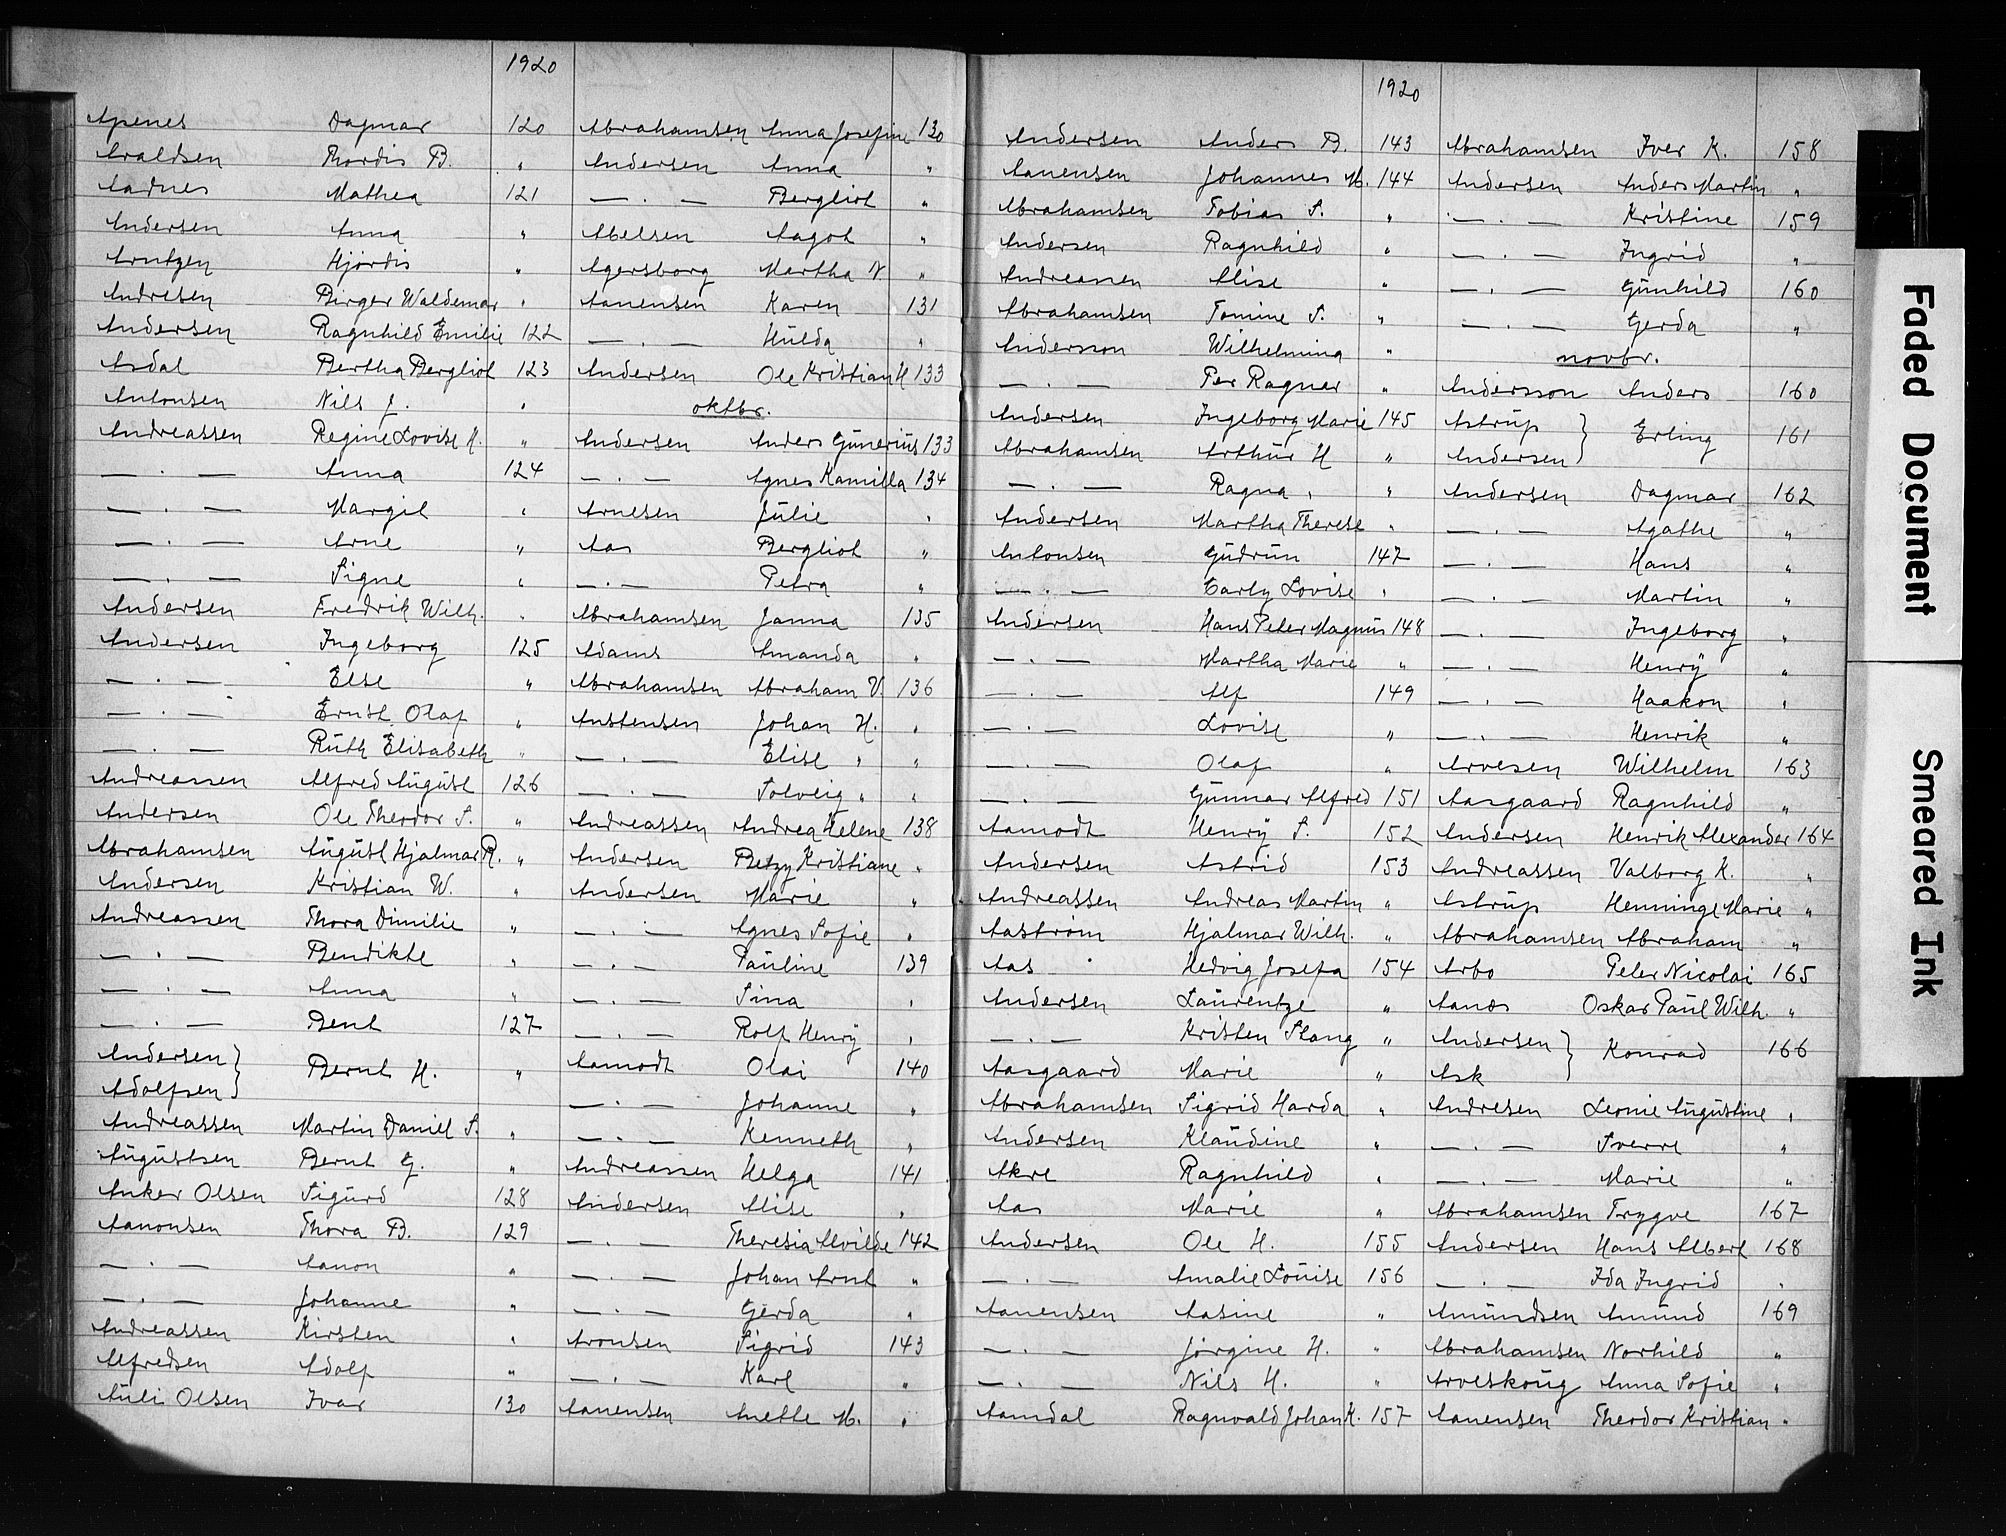 1920
Apenes Dagmar 120
Araldsen Thordis B. "
Aadnes Mathea 121
Andersen Anna "
Arntzen Hjördis "
Andresen Birger Waldemar "
Andersen Ragnhild Emilie 122
Asdal Bertha Bergliot 123
Antonsen Nils J. "
Andreassen Regine Lovise H. "
— . — Anna 124
— . — Margit "
— . — Arne "
— . — Signe "
Andersen Fredrik Wilh. "
Andersen Ingeborg 125
— . — Else "
— . — Ernst Olaf "
— . — Ruth Elisabeth "
Andreassen Alfred August 126
Andersen Ole Theodor S. "
Abrahamsen August Hjalmar R. "
Andersen Kristian W. "
Andreassen Thora Dimilie "
— . — Bendikte "
— . — Anna "
— . — Bent 127
Andersen }
Adolfsen } Bernt H. "
Andreassen Martin Daniel S. "
Augustsen Bernt G. "
Anker Olsen Sigurd 128
Aanonsen Thora B. 129
— . — Aanon "
— . — Johanne "
Andreassen Kirsten "
Alfredsen Adolf "
Auli Olsen Ivar 130
Abrahamsen Anna Josefine 130
Andersen Anna "
— . — Bergliot "
Abelsen Aagot "
Agersborg Martha N "
Aanensen Karen 131
— . — Hulda "
Andersen Ole Kristian H 133
oktbr.
Andersen Anders Gunerius 133
— . — Agnes Kamilla 134
Arnesen Julie "
Aas Bergliot "
— . — Petra "
Abrahamsen Janna 135
Adams Amanda "
Abrahamsen Abraham V. 136
Anstensen Johan H. "
— . — Elise " "
— . — Solveig " "
Andreassen Andrea Helene 138
Andersen Betzy Kristiane "
Andersen Marie "
— . — Agnes Sofie "
— . — Pauline 139
— . — Sina "
— . — Rolf Henry "
Aamodt Olai 140
— . — Johanne "
— . — Kenneth "
Andreassen Helga 141
Andersen Alise "
— . — Theresia Alvilde 142
— . — Johan Arnt "
— . — Gerda "
Aronsen Sigrid 143
— . — Karl "
Aanensen Anette M. "
1920
Andersen Anders B. 143
Aanensen Johannes M. 144
Abrahamsen Tobias S. "
Andersen Ragnhild "
Andreassen Alise "
Abrahamsen Tomine S. "
Andersson Wilhelmina "
— . — Per Ragner "
Andersen Ingeborg Marie 145
Abrahamsen Arthur H "
— . — Ragna " "
Andersen Martha Therese "
Antonsen Gudrun 147
— . — Carly Lovise "
Andersen Hans Peter Magnus 148
— . — Martha Marie "
— . — Alf 149
— . — Lovise "
— . — Olaf "
— . — Gunnar Alfred 151
Aamodt Henry S. 152
Andersen Astrid 153
Andreassen Andreas Martin "
Aastrøm Hjalmar Wilh. "
Aas Hedvig Josefa 154
Andersen Laurentze "
— . — Kristen Stang "
Aasgaard Marie "
Abrahamsen Sigrid Harda "
Andersen Klaudine "
Akre Ragnhild "
Aas Marie "
Andersen Ole H. 155
— . — Amalie Louise 156
Aanensen Aasine "
— . — Jørgine H. "
— . — Nils H. "
Aamdal Ragnvald Johan K. 157
Abrahamsen Iver K. 158
Andersen Anders Martin "
— . — Kristine 159
— . — Ingrid "
— . — Gunhild 160
— . — Gerda "
novbr.
Andersson Anders 160
Astrup }
Andersen } Erling 161
Andersen Dagmar 162
— . — Agathe "
— . — Hans "
— . — Martin "
— . — Ingeborg "
— . — Henry "
— . — Haakon "
— . — Henrik "
Arvesen Wilhelm 163
Aasgaard Ragnhild "
Andersen Henrik Alexander 164
Andreassen Valborg K. "
Astrup Henninge Marie "
Abrahamsen Abraham "
Arbo Peter Nicolai 165
Aanes Oskar Paul Wilh. "
Andersen }
Ask } Konrad 166
Andresen Leonie Augustine "
— . — Sverre "
— . — Marie "
Abrahamsen Trygve 167
Andersen Hans Albert 168
— . — Ida Ingrid "
Amundsen Amund 169
Abrahamsen Norhild "
Arveskoug Anna Sofie "
Aanensen Theodor Kristian "
Faded Document
Smeared Ink